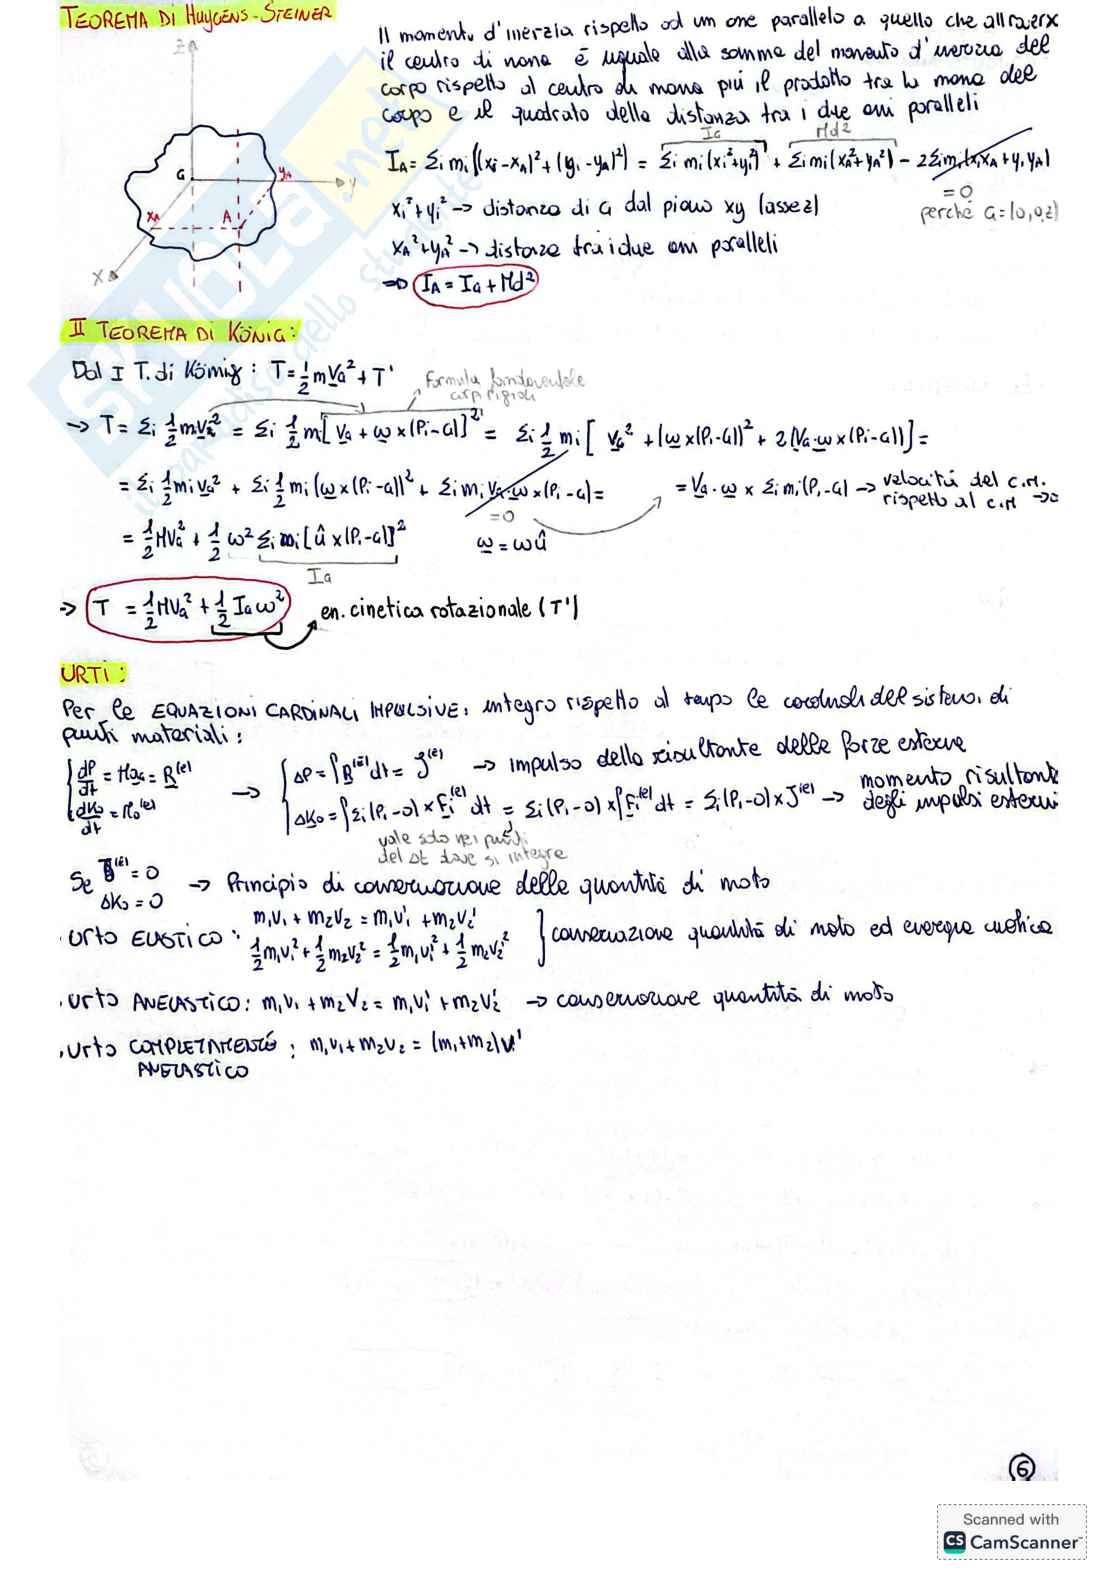 TEOREMA DI HUYGENS-STEINER
Il momento d'inerzia rispetto ad un asse parallelo a quello che attraversa
il centro di massa è uguale alla somma del momento d'inerzia del
corpo rispetto al centro di massa più il prodotto tra la massa del
corpo e il quadrato della distanza tra i due assi paralleli
Z
G
yA
y
xA
A
X
IG
Md²
IA = Σi mi[(xi-xA)²+(yi-yA)²] = Σi mi(xi²+yi²) + Σi mi(xA²+yA²) - 2Σi mi(xi xA + yi yA)
= 0
perché G=(0,0,z)
xi²+yi² → distanza di G dal piano xy (asse z)
xA²+yA² → distanza tra i due assi paralleli
⇒ IA = IG + Md²
II TEOREMA DI KÖNIG:
Dal I T. di König: T = 1/2 m VG² + T'
Formula fondamentale
corpi rigidi
→ T = Σi 1/2 mi Vi² = Σi 1/2 mi[VG + ω x (Pi-G)]² = Σi 1/2 mi [VG² + (ω x (Pi-G))² + 2(VG·ω x (Pi-G))] =
= Σi 1/2 mi VG² + Σi 1/2 mi (ω x (Pi-G))² + Σi mi VG·ω x (Pi-G) =
= 0
= VG·ω x Σi mi(Pi-G) → velocità del c.m.
rispetto al c.m → 0
= 1/2 MVG² + 1/2 ω² Σi mi[û x (Pi-G)]²
ω = ωû
IG
⇒ T = 1/2 MVG² + 1/2 IG ω²
en. cinetica rotazionale (T')
URTI:
Per le EQUAZIONI CARDINALI IMPULSIVE, integro rispetto al tempo le cardinali del sistema di
punti materiali:
dP/dt = MaG = R(e)
dKo/dt = Mo(e)
→
ΔP = ∫R(e)dt = J(e) → impulso della risultante delle forze esterne
ΔKo = ∫Σi(Pi-O) x Fi(e) dt = Σi(Pi-O) x ∫Fi(e)dt = Σi(Pi-O) x J(e) → momento risultante
degli impulsi esterni
vale solo nei punti
del Δt dove si integra
Se J(e) = 0
ΔKo = 0
→ Principio di conservazione della quantità di moto
· urto ELASTICO: m1v1 + m2v2 = m1v1' + m2v2'
1/2 m1v1² + 1/2 m2v2² = 1/2 m1v1'² + 1/2 m2v2'²
} conservazione quantità di moto ed energia cinetica
· urto ANELASTICO: m1v1 + m2v2 = m1v1' + m2v2' → conservazione quantità di moto
· urto COMPLETAMENTE: m1v1 + m2v2 = (m1+m2)v'
ANELASTICO
6
SKUOLA.net
il paradiso dello studente
Scanned with
CS CamScanner